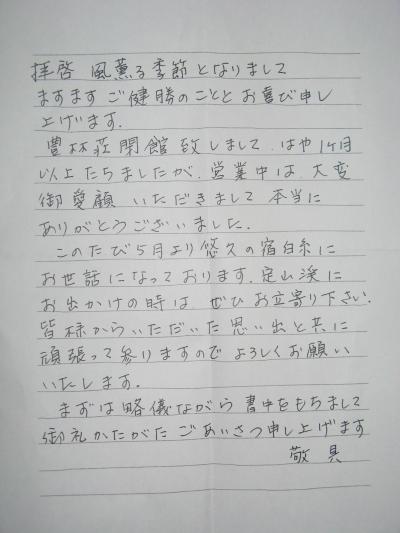 拝啓 風薫る季節となりまして
ますます ご健勝のこととお喜び申し
上げます.
豊林荘閉館致しまして、はや1ヶ月
以上たちましたが、営業中は、大変
御愛顧 いただきまして 本当に
ありがとうございました.
このたび5月より悠久の宿白糸に
お世話になっております.定山渓に
お出かけの時は ぜひ お立寄り下さい.
皆様からいただいた思い出と共に
頑張って参りますのでよろしくお願い
いたします.
まずは略儀ながら書中をもちまして
御礼かたがたごあいさつ申し上げます
敬具